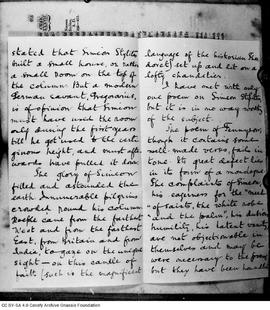 stated that Simeon Stylites
built a small house, or rather
a small room on the top of
the column. But a modern
German savant, Gregorovius,
is of opinion that Simeon
must have used the room
only during the first years
till he got used to the verti-
ginous height, and must af-
wards have pulled it down.
The glory of Simeon
filled and astounded the
earth. Innumerable pilgrims
crowded round his column.
People came from the farthest
West and from the farthest
East, from Britain and from
India, to gaze on the unique
sight — on this candle of
faith (such is the magnificent
language of the historian Theo-
doret) set up and lit on a
lofty chandelier.
I have met with only
one poem on Simeon Stylites
but it is in no way worthy
of the subject.
The poem of Tennyson,
though it contains some
well made verses fails in
tone. Its great defect lies
in its form of a monologue.
The complaints of Simeon,
his eagerness for the "meed
of saints, the white robe
and the palm", his dubious
humility, his latent vanity
are not objectionable in
themselves and may be
were necessary to the
but they have been handled
CC BY-SA 4.0 Cavafy Archive Onassis Foundation